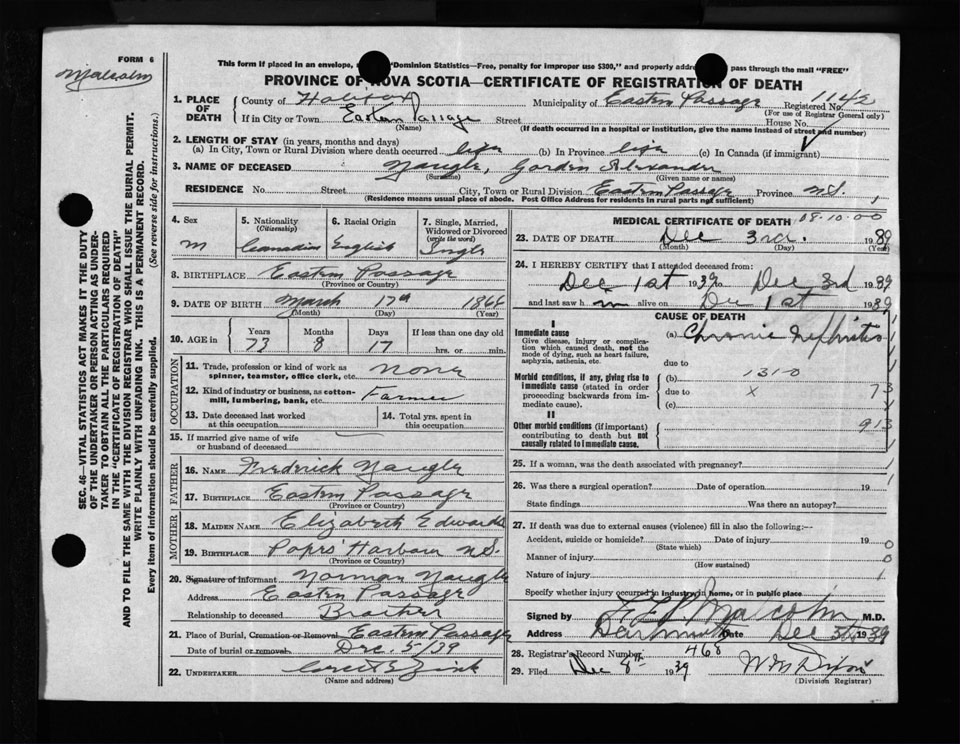 FORM 6
Malcolm
This form if placed in an envelope, "Dominion Statistics—Free, penalty for improper use $300," and properly pass through the mail "FREE"
PROVINCE OF NOVA SCOTIA—CERTIFICATE OF REGISTRATION OF DEATH
1. PLACE OF DEATH
County of Halifax Municipality of Eastern Passage Registered No. 1142
(For use of Registrar General only)
If in City or Town Eastern Passage Street House No.
(Name) (If death occurred in a hospital or institution, give the name instead of street and number)
2. LENGTH OF STAY (in years, months and days)
(a) In City, Town or Rural Division where death occurred life (b) In Province life (c) In Canada (if immigrant)
3. NAME OF DECEASED Naugle, Gordon Alexander
(Surname) (Given name or names)
RESIDENCE No. Street City, Town or Rural Division Eastern Passage Province N.S.
(Residence means usual place of abode. Post Office Address for residents in rural parts not sufficient)
4. Sex
M
5. Nationality
(Citizenship)
Canadian
6. Racial Origin
English
7. Single, Married, Widowed or Divorced
(write the word)
Single
8. BIRTHPLACE Eastern Passage
(Province or Country)
9. DATE OF BIRTH March 17th 1866
(Month) (Day) (Year)
10. AGE in
Years Months Days If less than one day old
73 8 17 hrs. or min.
OCCUPATION
11. Trade, profession or kind of work as
spinner, teamster, office clerk, etc. none
12. Kind of industry or business, as cotton-
mill, lumbering, bank, etc. Farmer
13. Date deceased last worked
at this occupation
14. Total yrs. spent in
this occupation
15. If married give name of wife
or husband of deceased
FATHER
16. NAME Frederick Naugle
17. BIRTHPLACE Eastern Passage
(Province or Country)
MOTHER
18. MAIDEN NAME Elizabeth Edwards
19. BIRTHPLACE Popes Harbour N.S.
(Province or Country)
20. Signature of informant Norman Naugle
Address Eastern Passage
Relationship to deceased Brother
21. Place of Burial, Cremation or Removal Eastern Passage
Date of burial or removal Dec. 5/39
22. UNDERTAKER Zink
(Name and address)
MEDICAL CERTIFICATE OF DEATH 08-10-00
23. DATE OF DEATH Dec 3rd. 1939
(Month) (Day) (Year)
24. I HEREBY CERTIFY that I attended deceased from:
Dec 1st 1939 to Dec 3rd 1939
and last saw him alive on Dec 1st 1939
CAUSE OF DEATH
I
Immediate cause
Give disease, injury or complication which caused death, not the mode of dying, such as heart failure, asphyxia, asthenia, etc.
(a) Chronic Nephritis
due to
Morbid conditions, if any, giving rise to immediate cause (stated in order proceeding backwards from immediate cause).
(b) 131-0
due to x 73
(c)
II
Other morbid conditions (if important) contributing to death but not causally related to immediate cause.
913
25. If a woman, was the death associated with pregnancy?
26. Was there a surgical operation? Date of operation 19
State findings Was there an autopsy?
27. If death was due to external causes (violence) fill in also the following:—
Accident, suicide or homicide? Date of injury 19 0
(State which)
Manner of injury 0
(How sustained)
Nature of injury 1
Specify whether injury occurred in industry, in home, or in public place
Signed by Malcolm M.D.
Address Dartmouth Date Dec 5th 1939
28. Registrar's Record Number 468
29. Filed Dec 8th 1939 W M Dixon
(Division Registrar)
SEC. 46—VITAL STATISTICS ACT MAKES IT THE DUTY
OF THE UNDERTAKER OR PERSON ACTING AS UNDER-
TAKER TO OBTAIN ALL THE PARTICULARS REQUIRED
IN THE "CERTIFICATE OF REGISTRATION OF DEATH"
AND TO FILE THE SAME WITH THE DIVISION REGISTRAR WHO SHALL ISSUE THE BURIAL PERMIT.
WRITE PLAINLY WITH UNFADING INK. THIS IS A PERMANENT RECORD.
Every item of information should be carefully supplied. (See reverse side for instructions.)